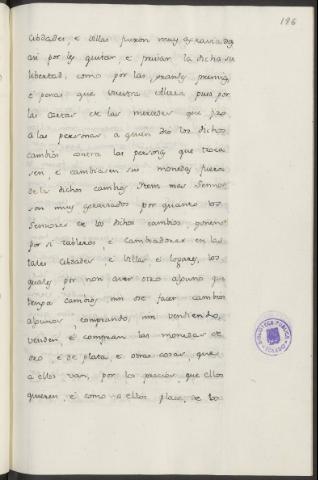 186
Cibdades, e villas fuxon muy agraviados
asi por les quitar, e privar la dicha su
libertad, como por las grandes premias,
é penas que vuestra Alteza puso por
las cartas de las mercedes que fizo
a las personas a quien dió los dichos
cambios contra las personas que troca
sen, e cambiasen sus monedas fuera
de los dichos cambios. Item mas Señor
son muy agraviados por quanto los
Señores de los dichos cambios, ponen
por sí tableros, e cambiadores en las
tales Cibdades é villas e logares, los
quales por non aver otro alguno que
tenga cambio, nin ose facer cambios
algunos, comprando, nin vendiendo,
venden, é compran las monedas de
oro, e de plata e otras cosas, que
a ellos van, por los precios, que ellos
quieren, é como a ellos place, de lo
BIBLIOTECA PUBLICA
TOLEDO